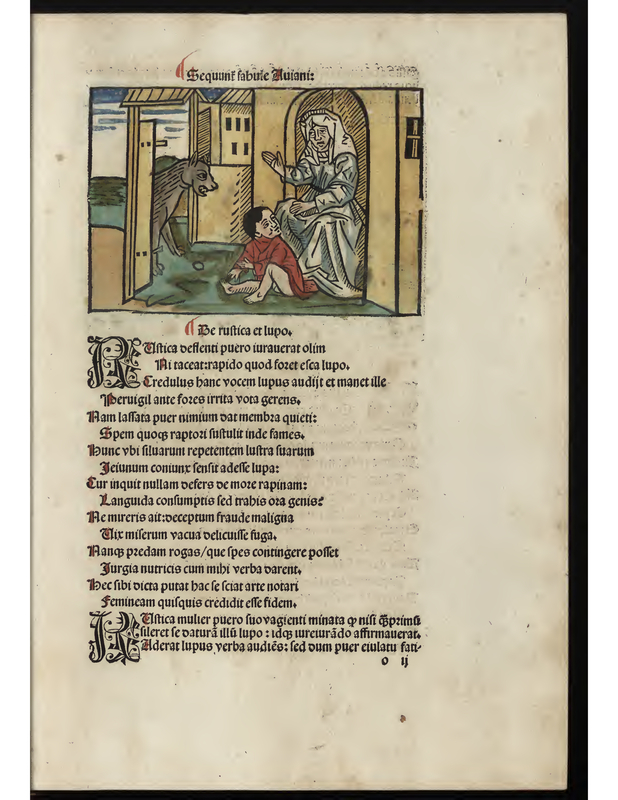 ¶ Sequunt᷑ fabule Auiani:
¶ De rustica et lupo.
RUstica deflenti puero iurauerat olim
Ni taceat: rapido quod foret esca lupo.
Credulus hanc vocem lupus audijt et manet ille
Peruigil ante fores irrita vota gerens.
Nam lassata puer nimium dat membra quieti:
Spem quoqꝫ raptori sustulit inde fames.
Hunc vbi siluarum repetentem lustra suarum
Jeiunum coniunx sensit adesse lupa:
Cur inquit nullam defers de more rapinam:
Languida consumptis sed trahis ora genis?
Ne mireris ait: deceptum fraude maligna
Uix miserum vacua delicuisse fuga.
Nanqꝫ predam rogas/que spes contingere posset
Jurgia nutricis cum mihi verba darent.
Hec sibi dicta putat hac se sciat arte notari
Femineam quisquis credidit esse fidem.
RUstica mulier puero suo vagienti minata ꝙ nisi qͣ̄primū
sileret se daturā illū lupo: idqꝫ iureiurādo affirmauerat.
Aderat lupus verba audiēs: sed dum puer eiulatu fati-
o ij